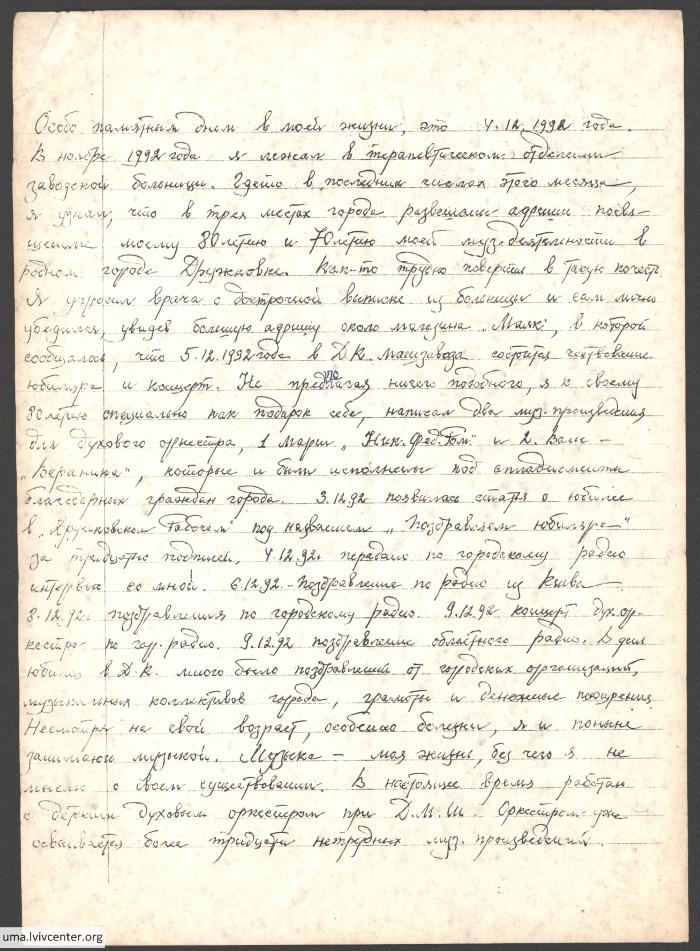 Особо памятным днем в моей жизни, это 4.12.1992 года.
В ноябре 1992 года я лежал в терапевтическом отделении
заводской больницы. Где-то в последних числах этого месяца,
я узнал, что в трех местах города развешаны афиши посвя-
щенные моему 80летию и 70летию моей муз. деятельности в
родном городе Дружковке. Как-то трудно поверить в такую почесть.
Я упросил врача о досрочной выписке из больницы и сам лично
убедился, увидев большую афишу около магазина „Маяк", в которой
сообщалось, что 5.12.1992 года в Д.К. Машзавода состоится чествование
юбиляра и концерт. Не предполагая ничего подобного, я к своему
80летию специально как подарок себе, написал два муз. произведения
для духового оркестра, 1 марш „Ник. Фед. " и 2. Вальс –
„ ", которые и были исполнены под аплодисменты
благодарных граждан города. 3.12.92 появилась статья о юбилее
в „Дружковском Рабочем" под названием „Поздравляем юбиляра"
за тридцатью подписей. 4.12.92г. передано по городскому радио
интервью со мной. 6.12.92. – Поздравление по радио из Киева
8.12.92. поздравления по городскому радио. 9.12.92 концерт дух. ор-
кестра по гор. радио. 9.12.92 поздравление областного радио. В день
юбилея в Д.К. много было поздравлений от городских организаций,
музыкальных коллективов города, грамоты и денежные поощрения.
Несмотря на свой возраст, особенно болезни, я и поныне
занимаюсь музыкой. Музыка – моя жизнь, без чего я не
мыслю о своем существовании. В настоящее время работаю
с детским духовым оркестром при Д.М.Ш. Оркестром уже
осваивается более тридцати нетрудных муз. произведений.
uma.lvivcenter.org